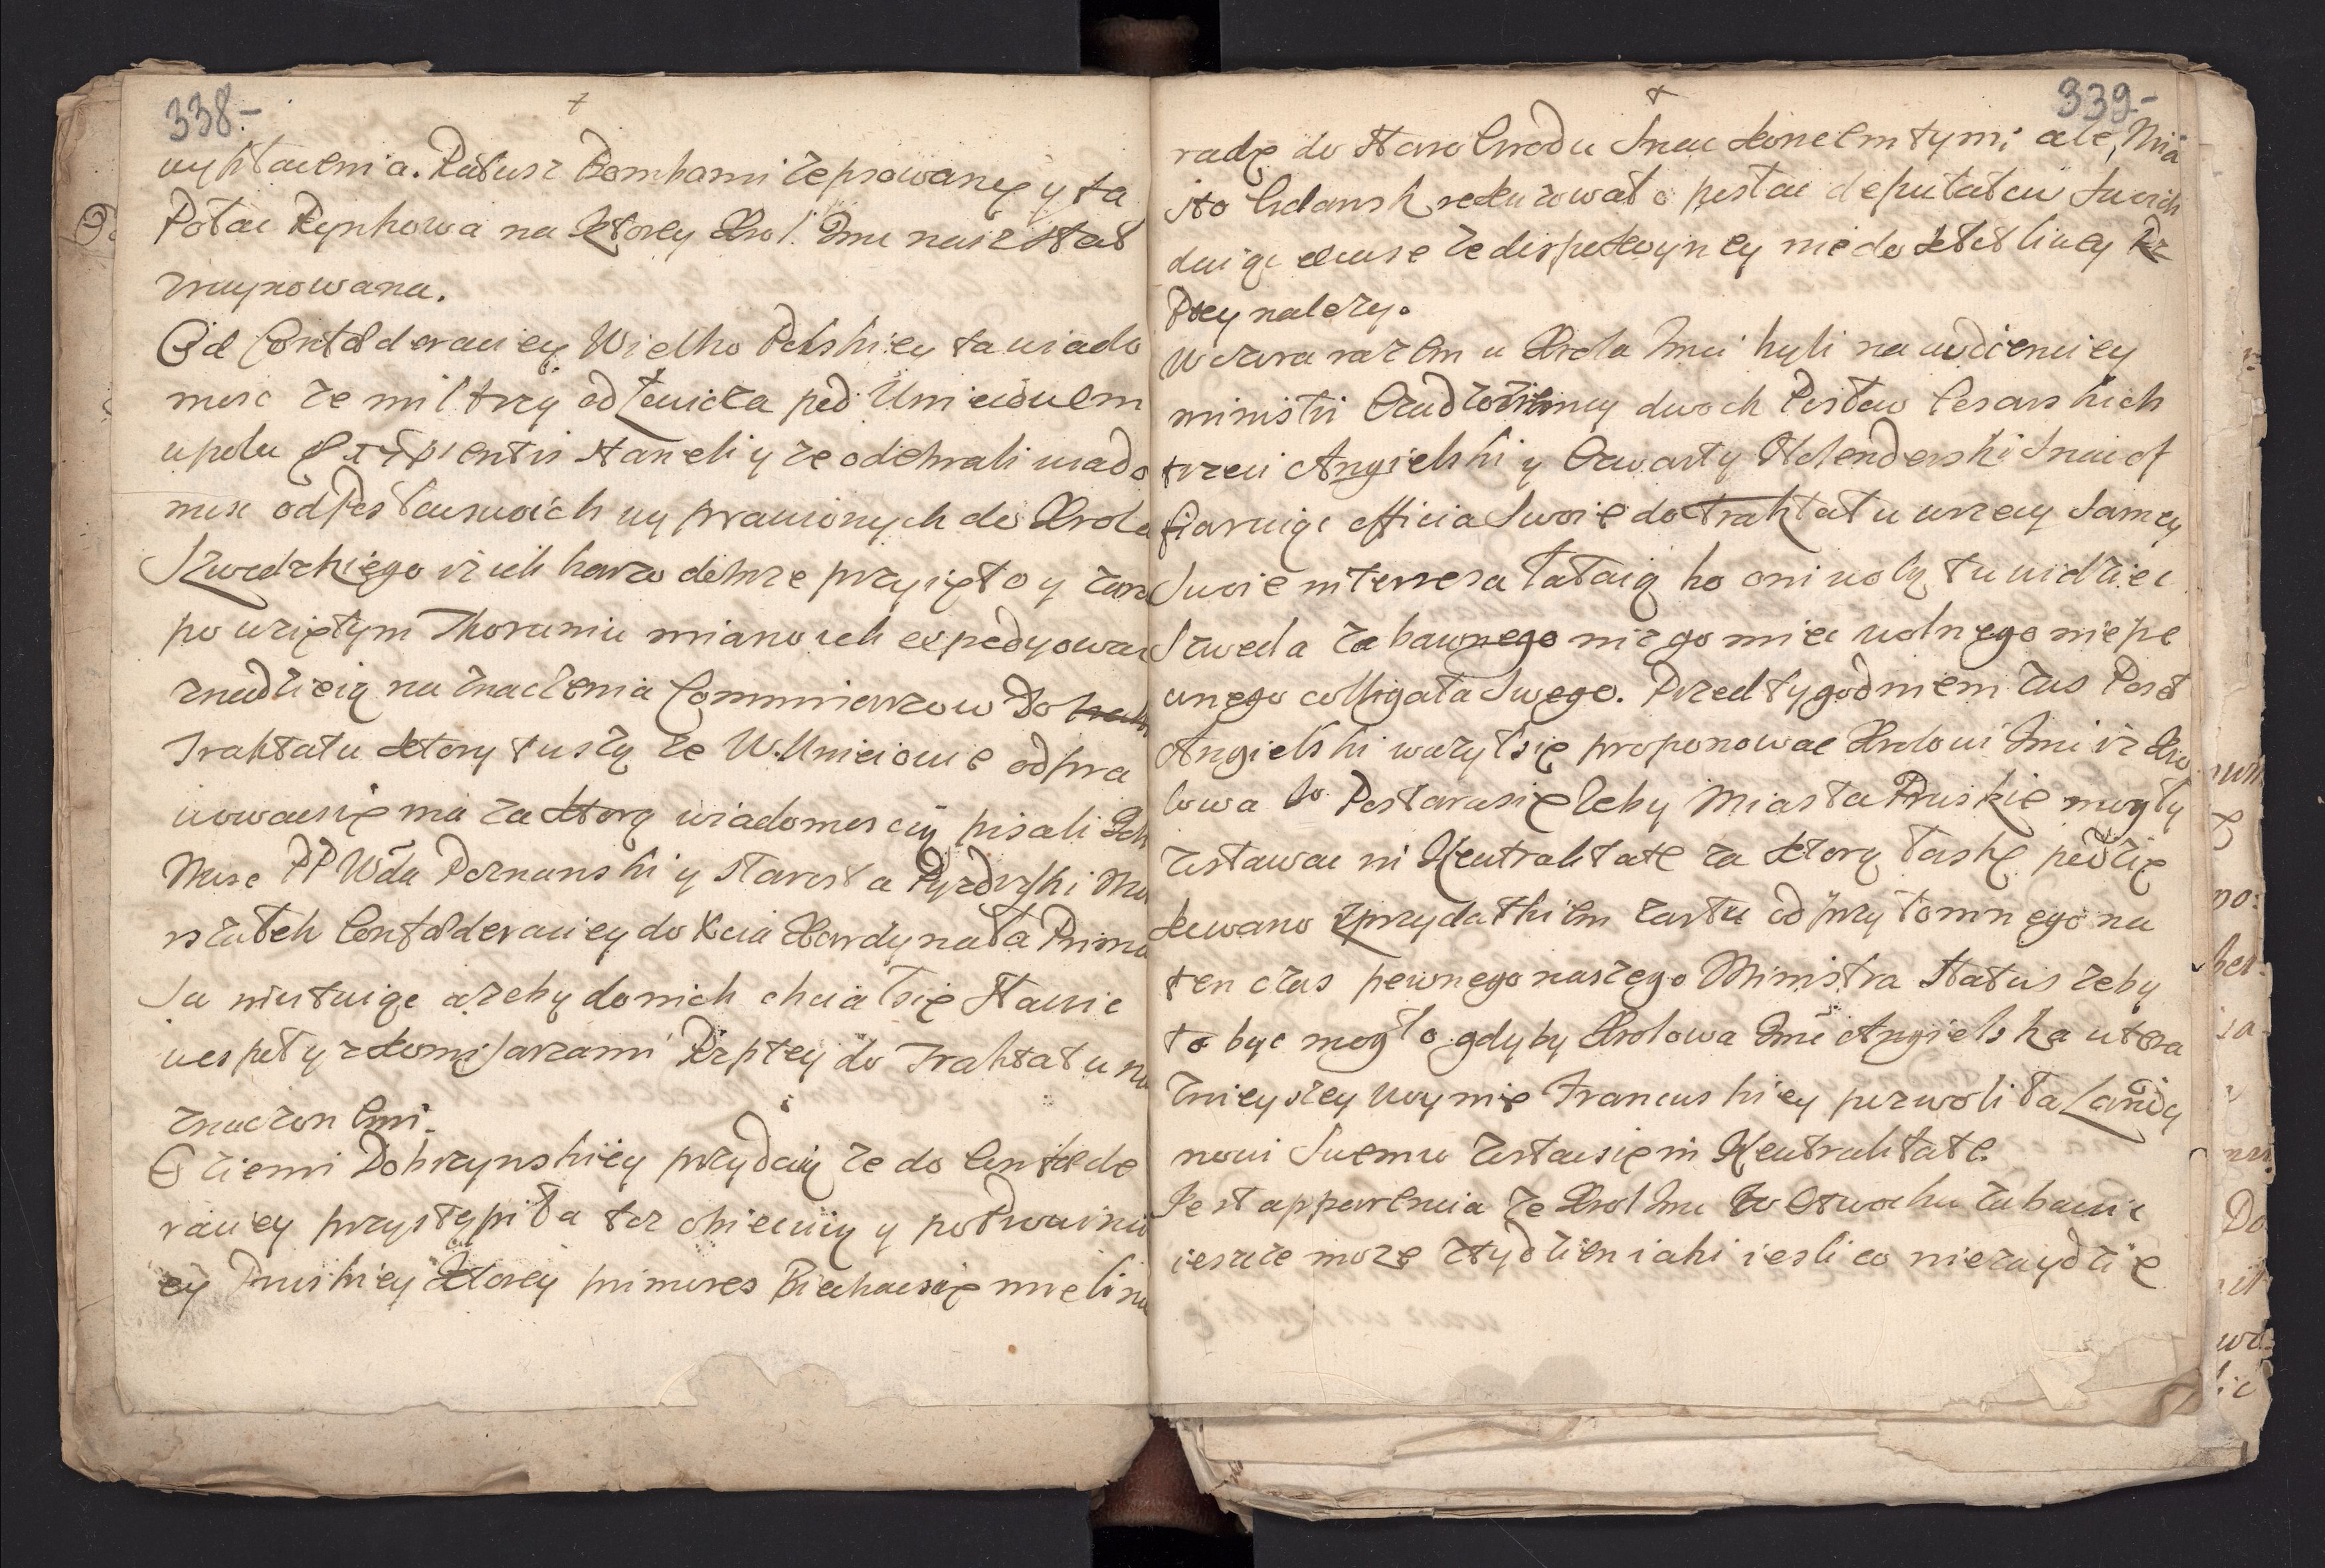 338-
wypłacenia. Ratusz Bombami zepsowany y ta
Połac Rynkowa na ktorey Krol Jmc nasz stał
zruynowana.
Od Confederaciey Wielko Polskiey ta wiado
mosc ze mil trzy od Łowicza pod Uniejowem
w polu staneli y ze odebrali wiado
mosc od Posłow swoich wyprawionych do Krola
Szwedzkiego iz ich barzo dobrze przyięto y zaraz
po wziętym Thoruniu miano ich expedyowac
z nadzieią naznaczenia Commisarzow do
Traktatu ktory tuszą ze w Unieiowie odpra
wowac się ma za ktorą wiadomoscią pisali Ich
Mosc PP Wda Poznanski y Starosta Pyzdrski Ma
rszałek Confederaciey do Xcia Kardynała Prima
sa invituiąc azeby do nich chciał się stawic
wespoł y z Komisarzami Rzptey do Traktatu na
znaczonemi.
O ziemi Dobrzynskiey przydaią ze do Confede
raciey przystąpiła toz obiecuią y po
ey Pruskiey ktorey primores mieli na
339-
radę do Staro Grodu ziachac konCem tym; ale Mia
sto Gdansk rekuzowało posłac deputatow swoich
daiąc excuse ze disposycyey niedoszłey Rz
Ptey nalezy.
Wczora razem u Krola Jmci byli na audienciey
ministri Cudzoziemscy dwoch Posłow Cesarskich
trzeci Angielski y Czwarty Holenderski Jmci of
fiaruiąc officia swoie do traktatu w rzeczy samey
swoie interessa łataią bo oni wolą tu widziec
Szweda zabawnego niz go miec wolnego niepe
wnego colligata swego. Przed tygodniem zas Poseł
Angielski wazył się proponowac Krolowi Jmci iz Kro
lowa Jo Postara się zeby Miasta Pruskie mogły
zostawac in Neutralitate za ktorą łaskę podzię
kowano z przydatkiem zartu od przytomnego na
ten czas pewnego naszego Ministra Status zeby
to byc mogło gdyby Krolowa Jmc Angielska utera
znieyszey woynie Francuskiey pozwoliła Londy
nowi swemu zostac się in Neutralitate.
Jest apparencia ze Krol Jmc w Otwocku zabawic
ieszcze moze z tydzien iaki iesli co nie zaydzie